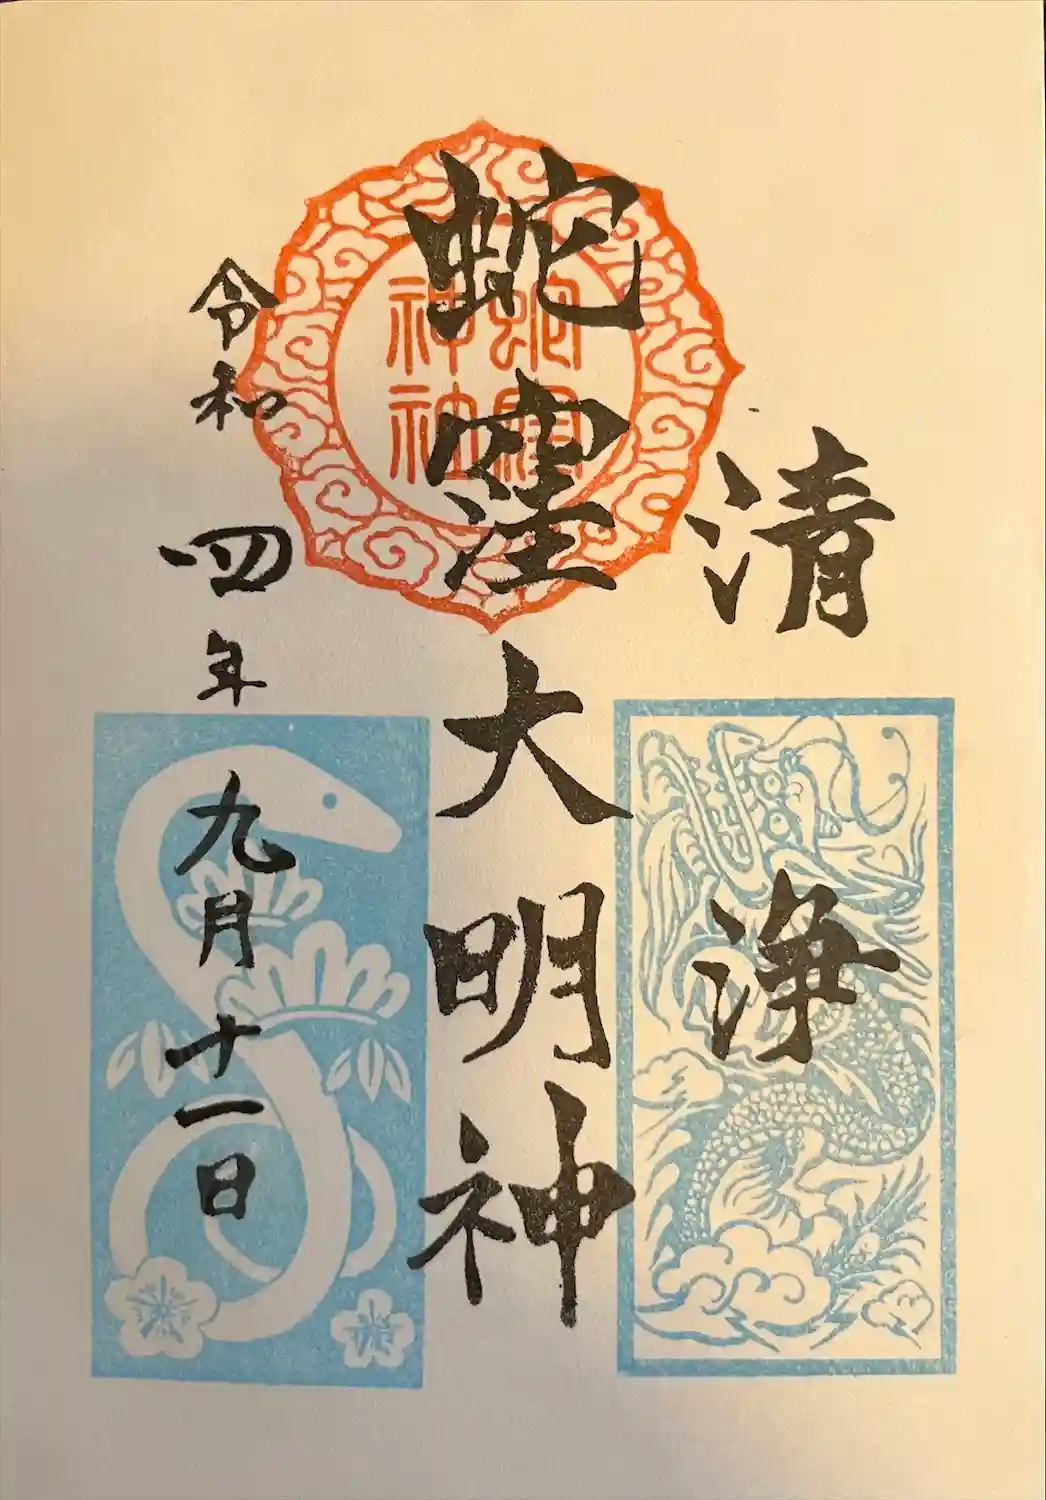 清浄
蛇窪大明神
蛇窪
神社
令和四年九月十一日